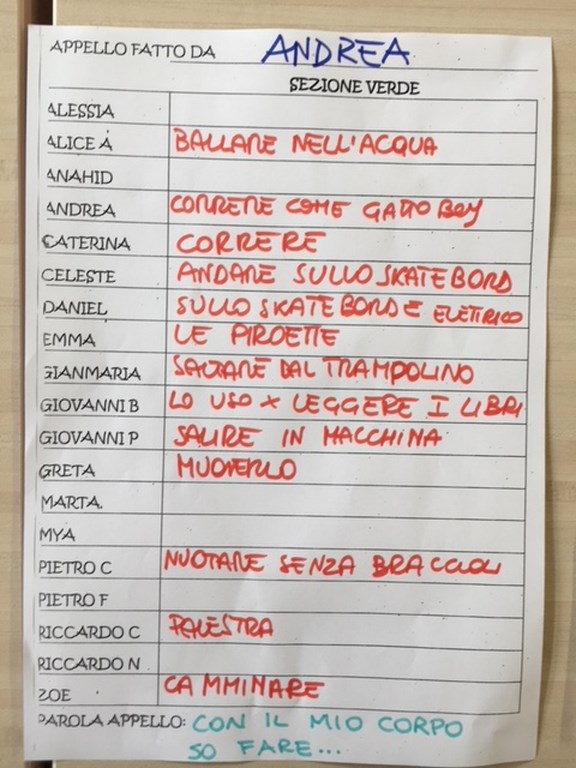 APPELLO FATTO DA ANDREA
SEZIONE VERDE
ALESSIA
ALICE A BALLARE NELL'ACQUA
ANAHID
ANDREA CORRERE COME GATTO BOY
CATERINA CORRERE
CELESTE ANDARE SULLO SKATE BORD
DANIEL SULLO SKATE BORD E ELETTRICO
EMMA LE PIROETTE
GIANMARIA SALTARE DAL TRAMPOLINO
GIOVANNI B LO USO X LEGGERE I LIBRI
GIOVANNI P SALIRE IN MACCHINA
GRETA MUOVERLO
MARTA
MYA
PIETRO C NUOTARE SENZA BRACCIOLI
PIETRO F
RICCARDO C PALESTRA
RICCARDO N
ZOE CAMMINARE
PAROLA APPELLO: CON IL MIO CORPO
SO FARE...